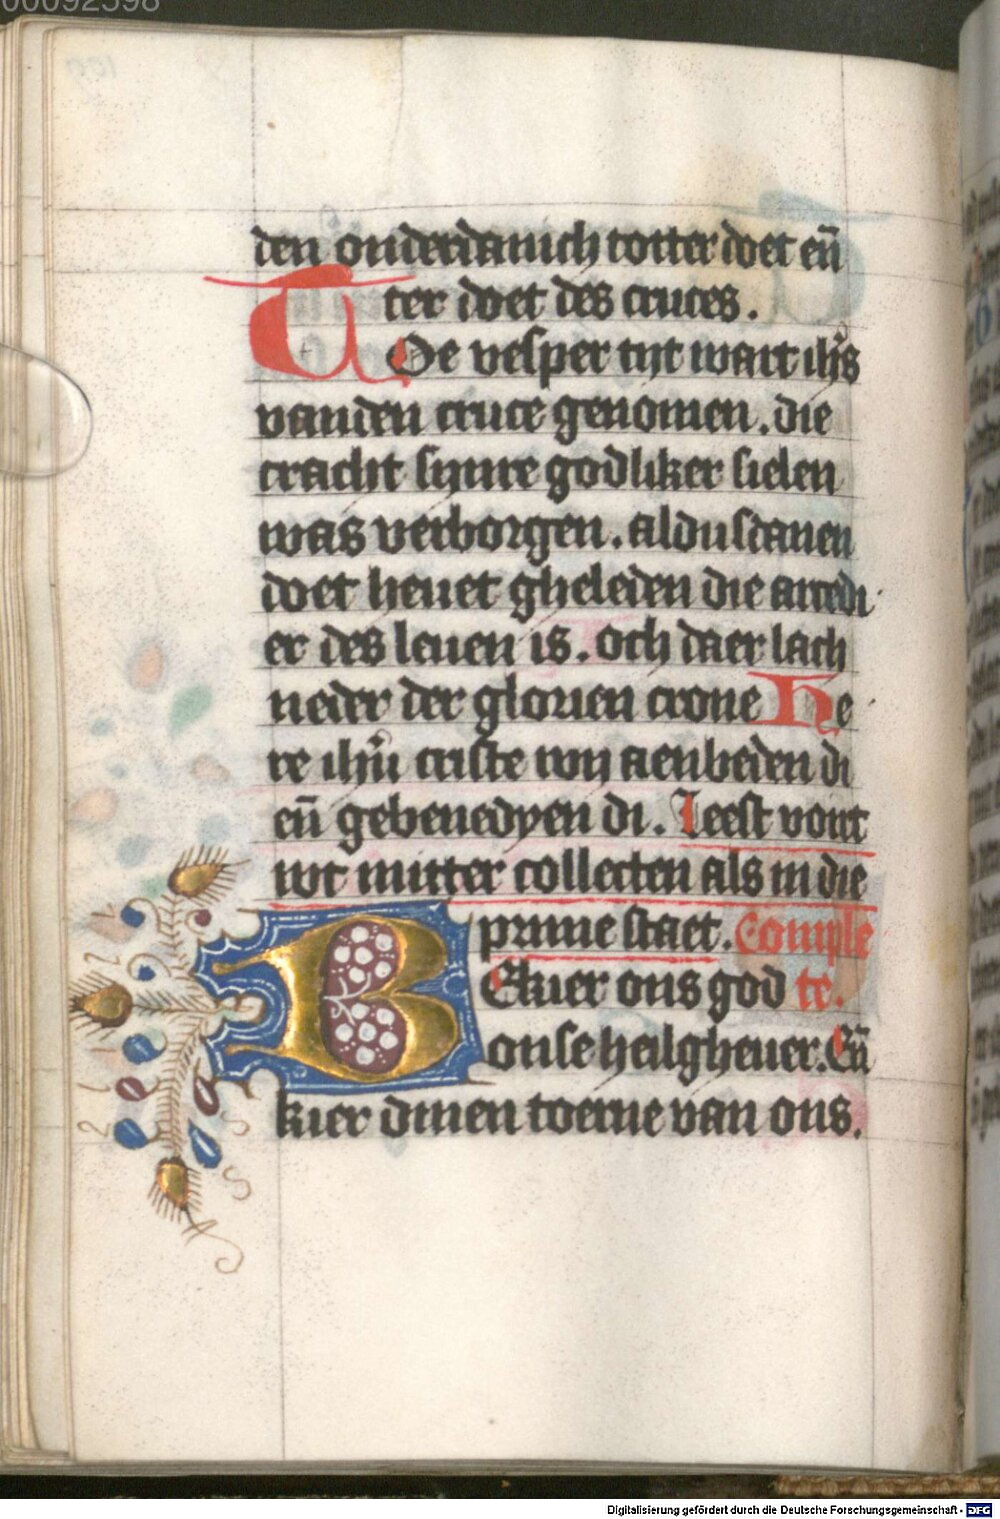 00092598
den onderdanich totter doet en̄
ter doet des cruces.
TOe vesper tijt wart ih̄s
vanden cruce genomen. die
cracht sijnre godliker sielen
was verborgen. aldustanen
doet heuet gheleden die artedi
er des leuen is. Och daer lach
neder der glorien crone He
re ih̄u criste wij aenbeden di
en̄ gebenedyen di. Leest vort
wt mitter collecten als in die
prime staet. Comple
BEkier ons god te.
onse heilgheuer. En̄
kier dinen toerne van ons.
Digitalisierung gefördert durch die Deutsche Forschungsgemeinschaft - DFG